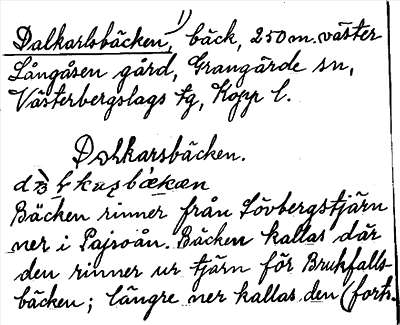 Dalkarlsbäcken,¹⁾ bäck, 250 m. väster
Långåsen gård, Grangärde sn,
Västerbergslags tg, Kopp l.
Dalkarsbäcken.
Bäcken rinner från Lövbergstjärn
ner i Pajsoån. Bäcken kallas där
den rinner ur tjärn för Brukfalls-
bäcken; längre ner kallas den (forts.